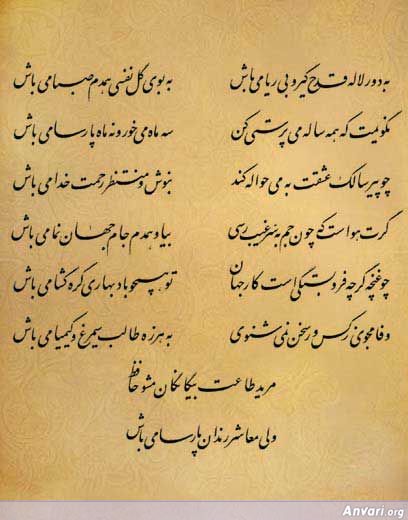 به دور لاله قدح گیر و بی ریا می باش به بوی گل نفسی همدم صبا می باش
نگویمت که همه ساله می پرستی کن سه ماه می خور و نه ماه پارسا می باش
چو پیر سالک عشقت به می حواله کند بنوش و منتظر رحمت خدا می باش
گرت هواست که چون جم به سر غیب رسی بیا و همدم جام جهان نما می باش
چو غنچه گرچه فروبستگی است کار جهان تو همچو باد بهاری گره گشا می باش
وفا مجوی ز کس ور سخن نمی شنوی به هرزه طالب سیمرغ و کیمیا می باش
مرید طاعت بیگانگان مشو حافظ
ولی معاشر رندان پارسا می باش
Anvari.org